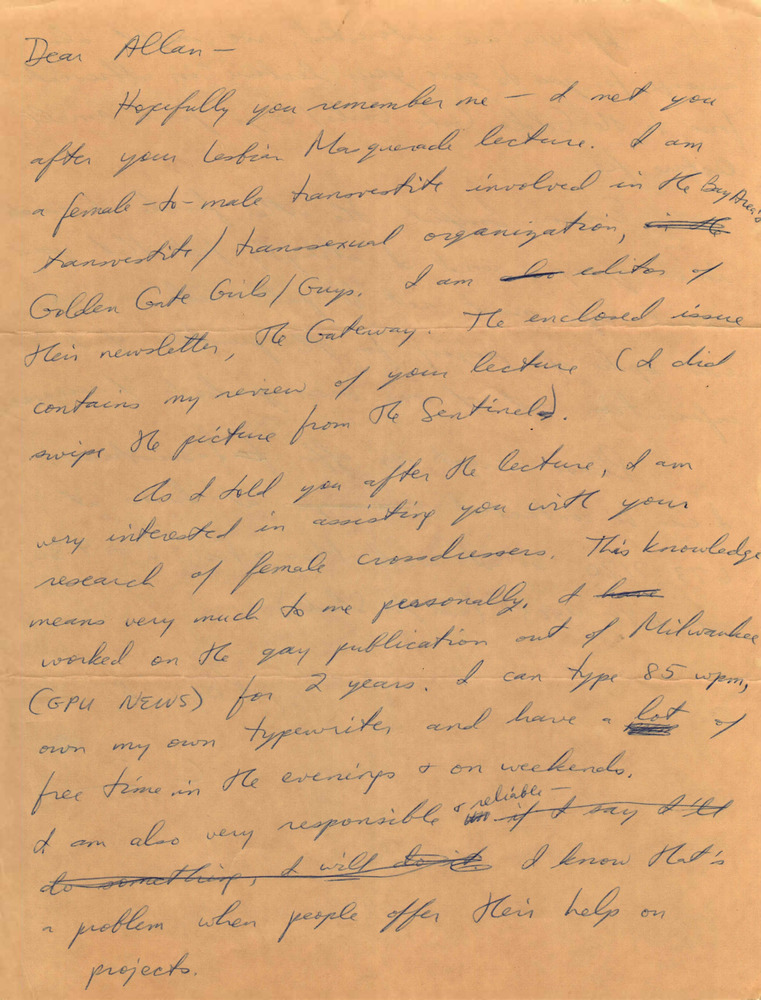 Dear Allan —
Hopefully you remember me — I met you
after your Lesbian Masquerade lecture. I am
a female-to-male transvestite involved in the Bay Area's
transvestite/transsexual organization, in the
Golden Gate Girls/Guys. I am editor of
their newsletter, The Gateway. The enclosed issue
contains my review of your lecture (I did
swipe the picture from The Sentinel).
As I told you after the lecture, I am
very interested in assisting you with your
research of female crossdressers. This knowledge
means very much to me personally. I have
worked on the gay publication out of Milwaukee
(GPU NEWS) for 2 years. I can type 85 wpm,
own my own typewriter and have a lot of
free time in the evenings + on weekends.
I am also very responsible + reliable — if I say I'll
do something, I will do it. I know that's
a problem when people offer their help on
projects.